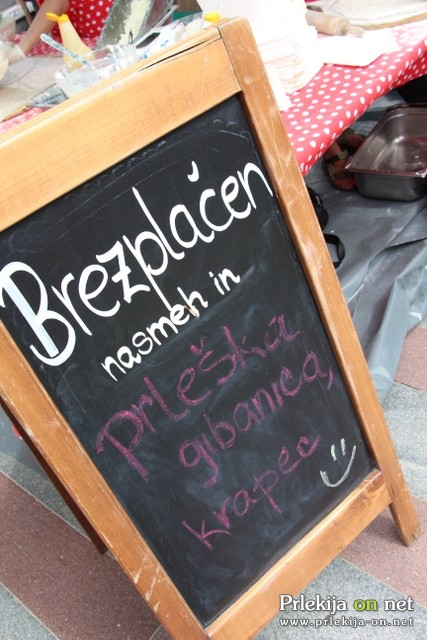 Brezplačen
nasmeh in
prleška
gibanica,
krapec
Prlekija on net
www.prlekija-on.net